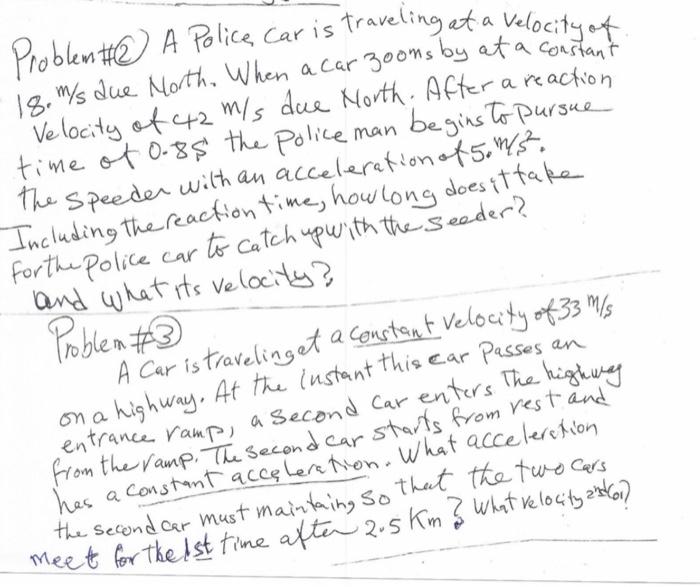 Problem #② A Police car is traveling at a velocity of
18. m/s due North. When a car zooms by at a constant
Velocity of 42 m/s due North. After a reaction
time of 0.8s the Police man begins to pursue
the speeder with an acceleration of 5. m/s².
Including the reaction time, how long does it take
for the police car to catch up with the seeder?
and what its velocity?
Problem #③
A Car is traveling at a constant velocity of 33 m/s
on a highway. At the instant this car Passes an
entrance ramp, a second car enters The highway
from the ramp. The second car starts from rest and
has a constant acceleration. What acceleration
the second car must maintaing so that the two cars
meet for the 1st time after 2.5 Km? What velocity 2nd